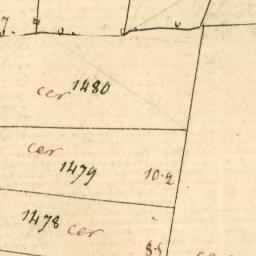 7.
cer 1480
cer
1479 10·2
1478 cer
8·5